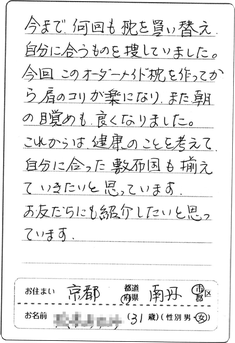 今まで何回も枕を買い替え
自分に合うものを捜していました。
今回このオーダーメイド枕を作ってか
ら肩のコリが楽になり、また朝
の目覚めも良くなりました。
これからは、健康のことを考えて、
自分に合った敷布団も揃え
ていきたいと思っています。
お友だちにも紹介したいと思っ
ています。
お住まい 京都 都道府県 南丹 市区
お名前 (31歳)(性別 男・女)